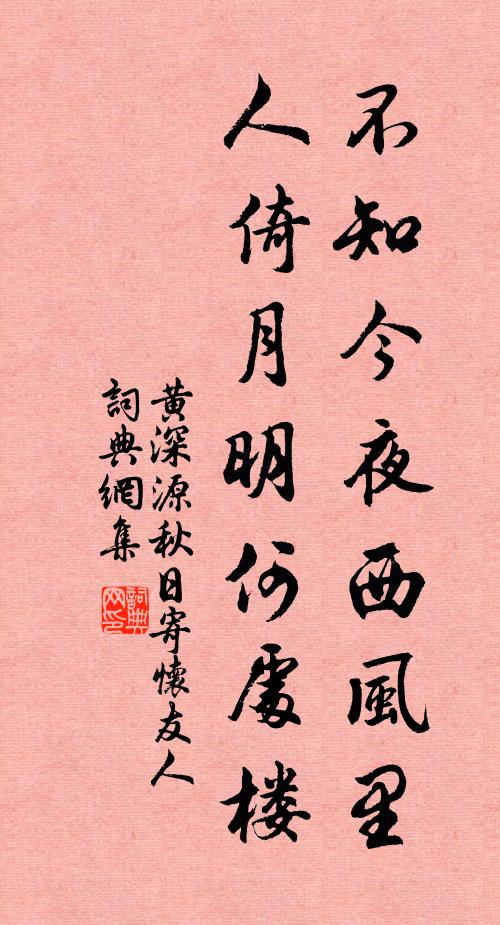 不知今夜西風里
人倚月明何處楼
黄深源秋日寄懷友人
詞典網集
詞典网印